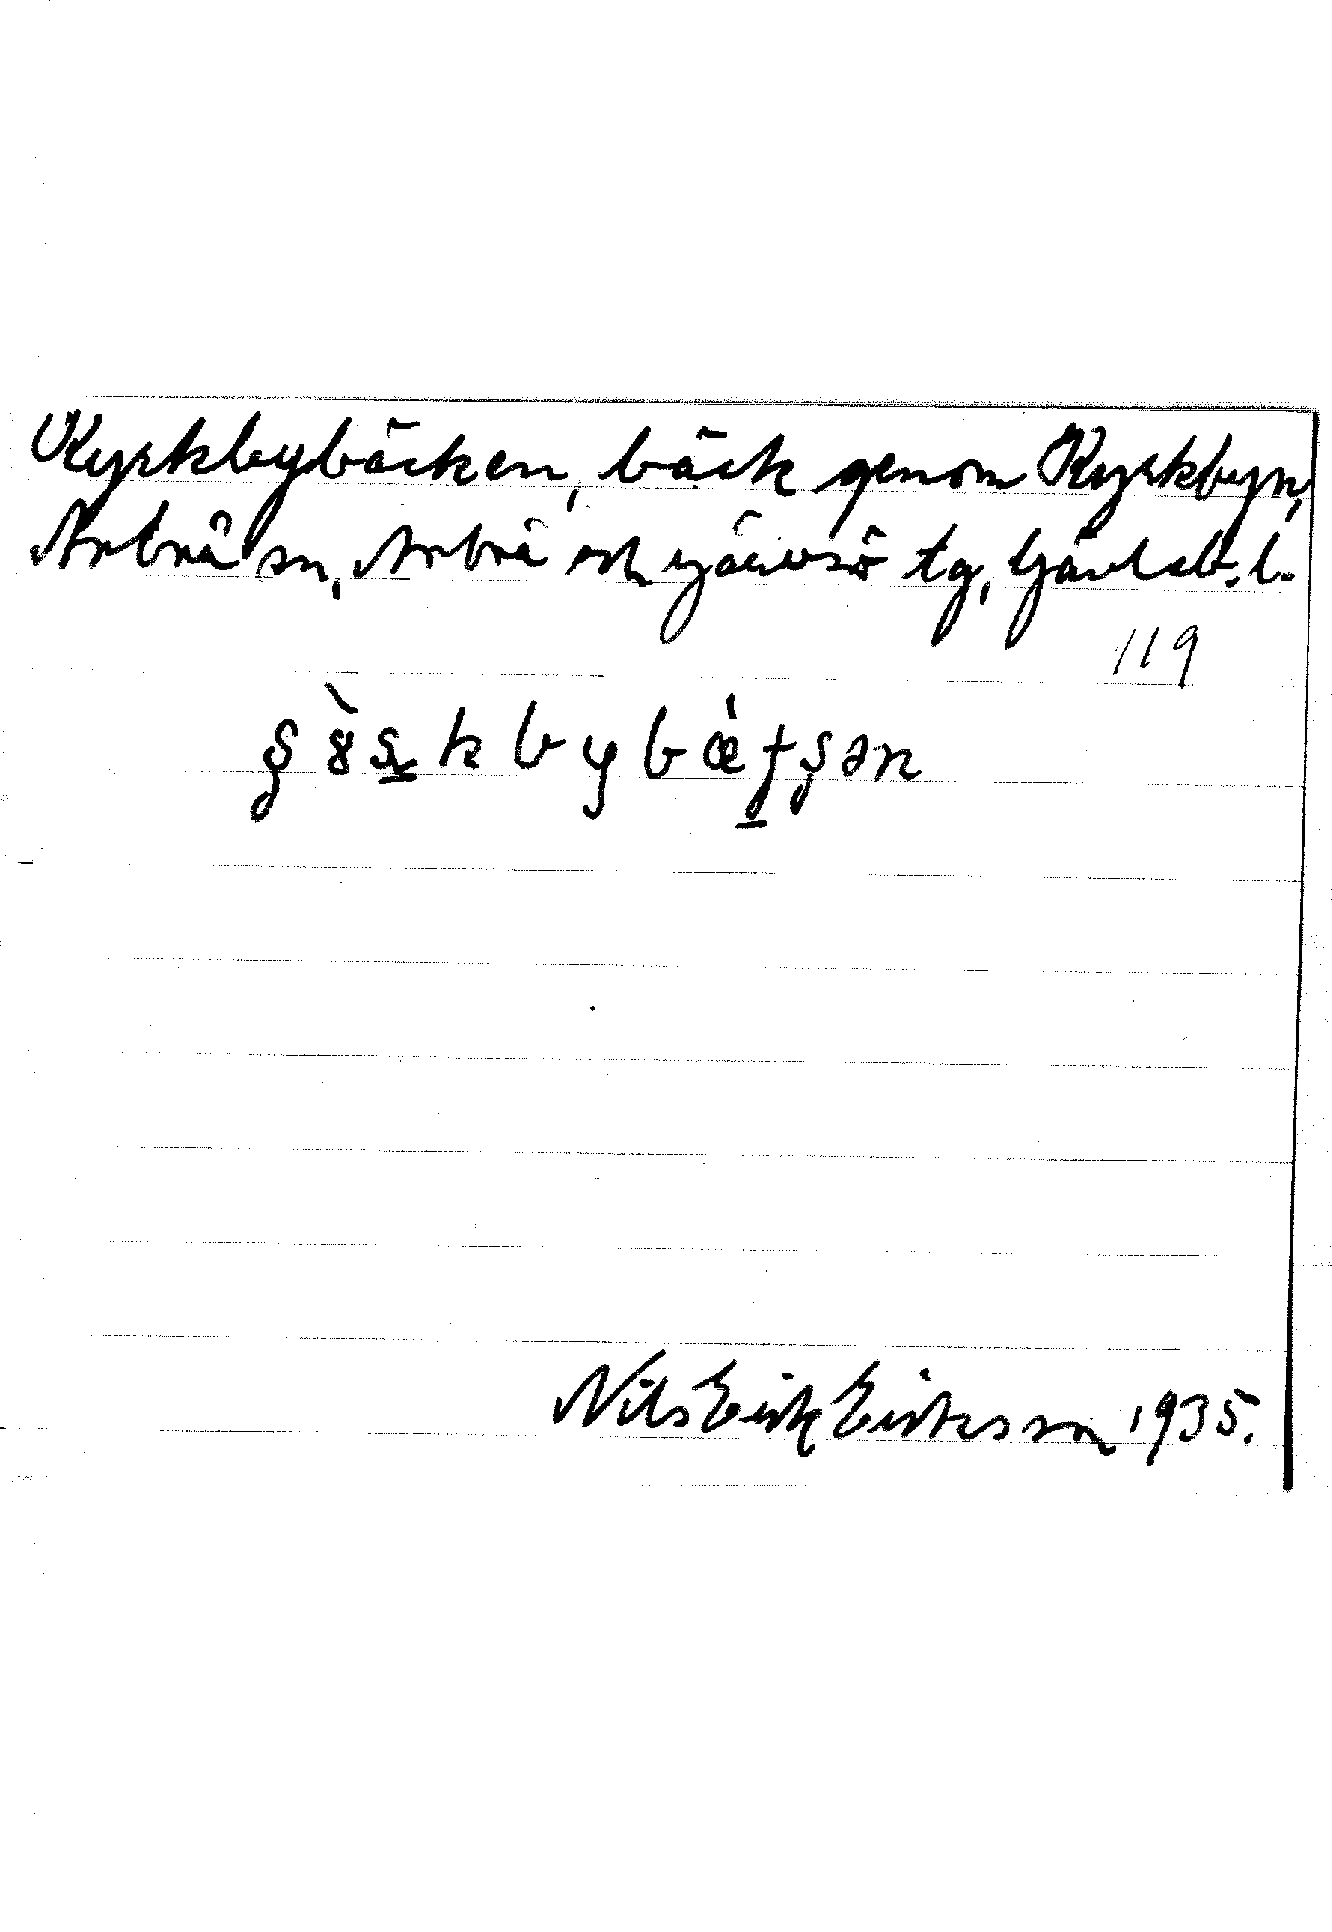 Kyrkbybäcken, bäck genom Kyrkbyn,
Arbrå sn, Arbrå och Järvsö tg, Gävleb. l.
119
Nils Erik Eriksson 1935.